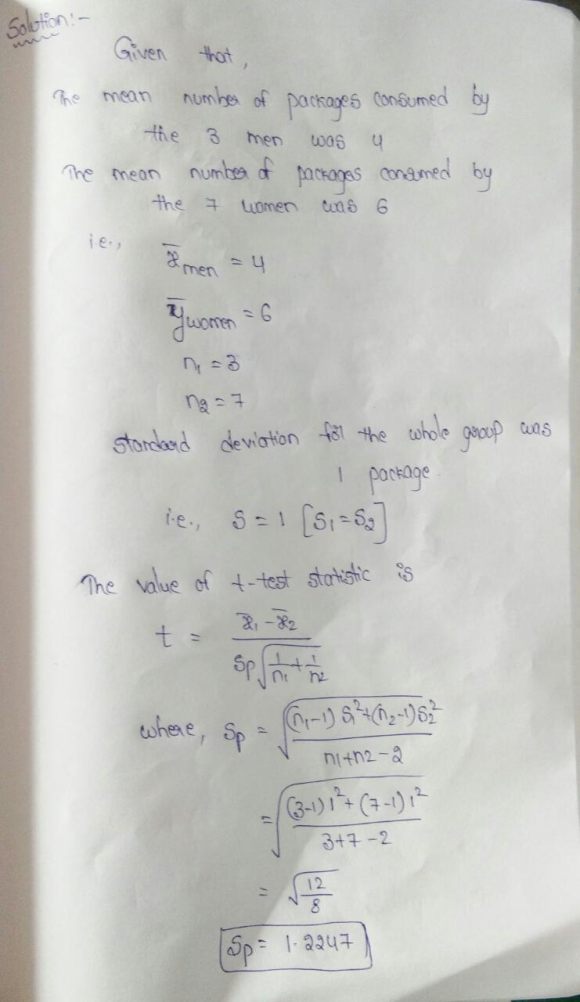 Solution:-
Given that,
The mean number of packages consumed by
the 3 men was 4
The mean number of packages consumed by
the 7 women was 6
i.e., x̄men = 4
ȳwomen = 6
n₁ = 3
n₂ = 7
standard deviation for the whole group was
1 package
i.e., S = 1 [S₁ = S₂]
The value of t-test statistic is
t = (x̄₁ - x̄₂) / (Sp √(1/n₁ + 1/n₂))
where, Sp = √(((n₁-1) S₁² + (n₂-1) S₂²) / (n₁+n₂-2))
= √(((3-1) 1² + (7-1) 1²) / (3+7-2))
= √(12/8)
Sp = 1.2247